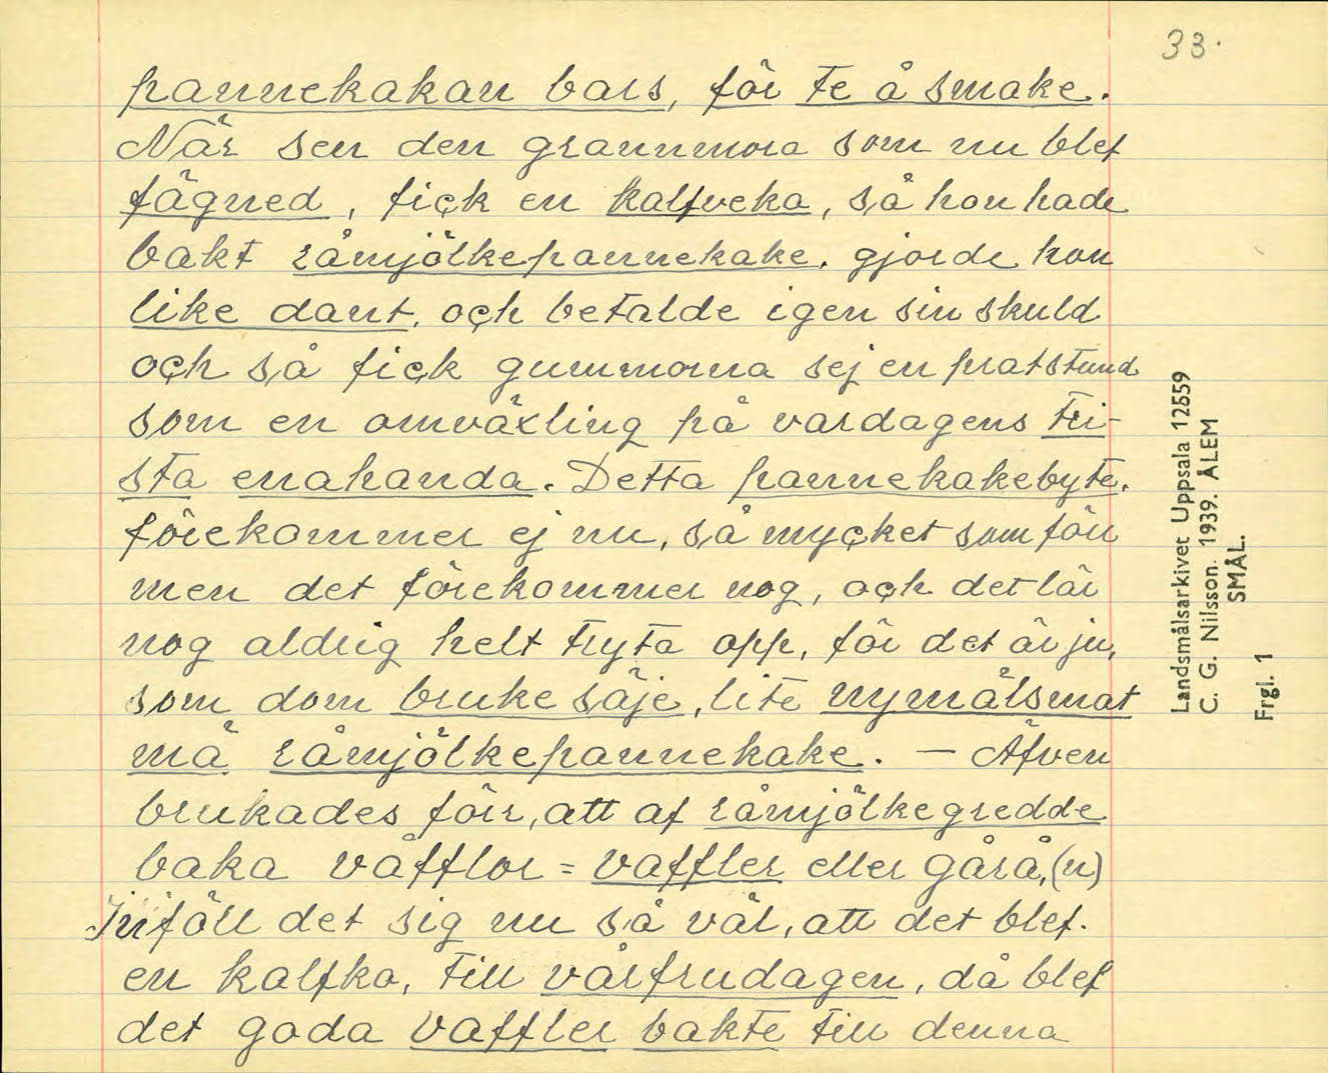 33.
pannekakan bars, för te å smake.
När sen den grannmora som nu blef
fägned, fick en kalfveka, så hon hade
bakt råmjölkepannekake. gjorde hon
like dant. och betalde igen sin skuld
och så fick gummorna sej en pratstund
som en omväxling på vardagens tri-
sta enahanda. Detta pannekakebyte.
förekommer ej nu, så mycket som förr
men det förekommer nog, och det lär
nog aldrig helt tryta opp, för det är ju,
som dom bruke säje, lite nymålsmat
mä råmjölkepannekake. — Äfven
brukades förr, att af råmjölkegredde
baka våfflor = vaffler eller gårå,(n)
Inföll det sig nu så väl, att det blef.
en kalfko, till vårfrudagen, då blef
det goda vaffler bakte till denna
Landsmålsarkivet Uppsala 12559
C. G. Nilsson. 1939. ÅLEM
SMÅL.
Frgl. 1